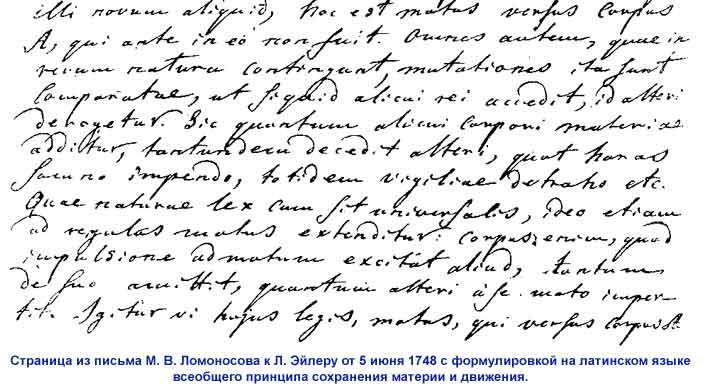 illi novum aliquid, hoc est motus versus corpus
A, qui ante in eo non fuit. Omnes autem, quae in
rerum natura contingunt, mutationes ita sunt
comparatae, ut si quid alicui rei accedit, id alteri
derogetur. Sic quantum alicui corpori materiae
additur, tantundem decedit alteri, quot horas
somno impendo, totidem vigiliae detraho etc.
Quae naturae lex cum sit universalis, ideo etiam
ad regulas motus extenditur: corpus enim, quod
impulsione ad motum excitat aliud, tantum
de suo amittit, quantum alteri a se moto imper-
tit. Igitur vi hujus legis, motus, qui versus corpus
Страница из письма М. В. Ломоносова к Л. Эйлеру от 5 июня 1748 с формулировкой на латинском языке
всеобщего принципа сохранения материи и движения.